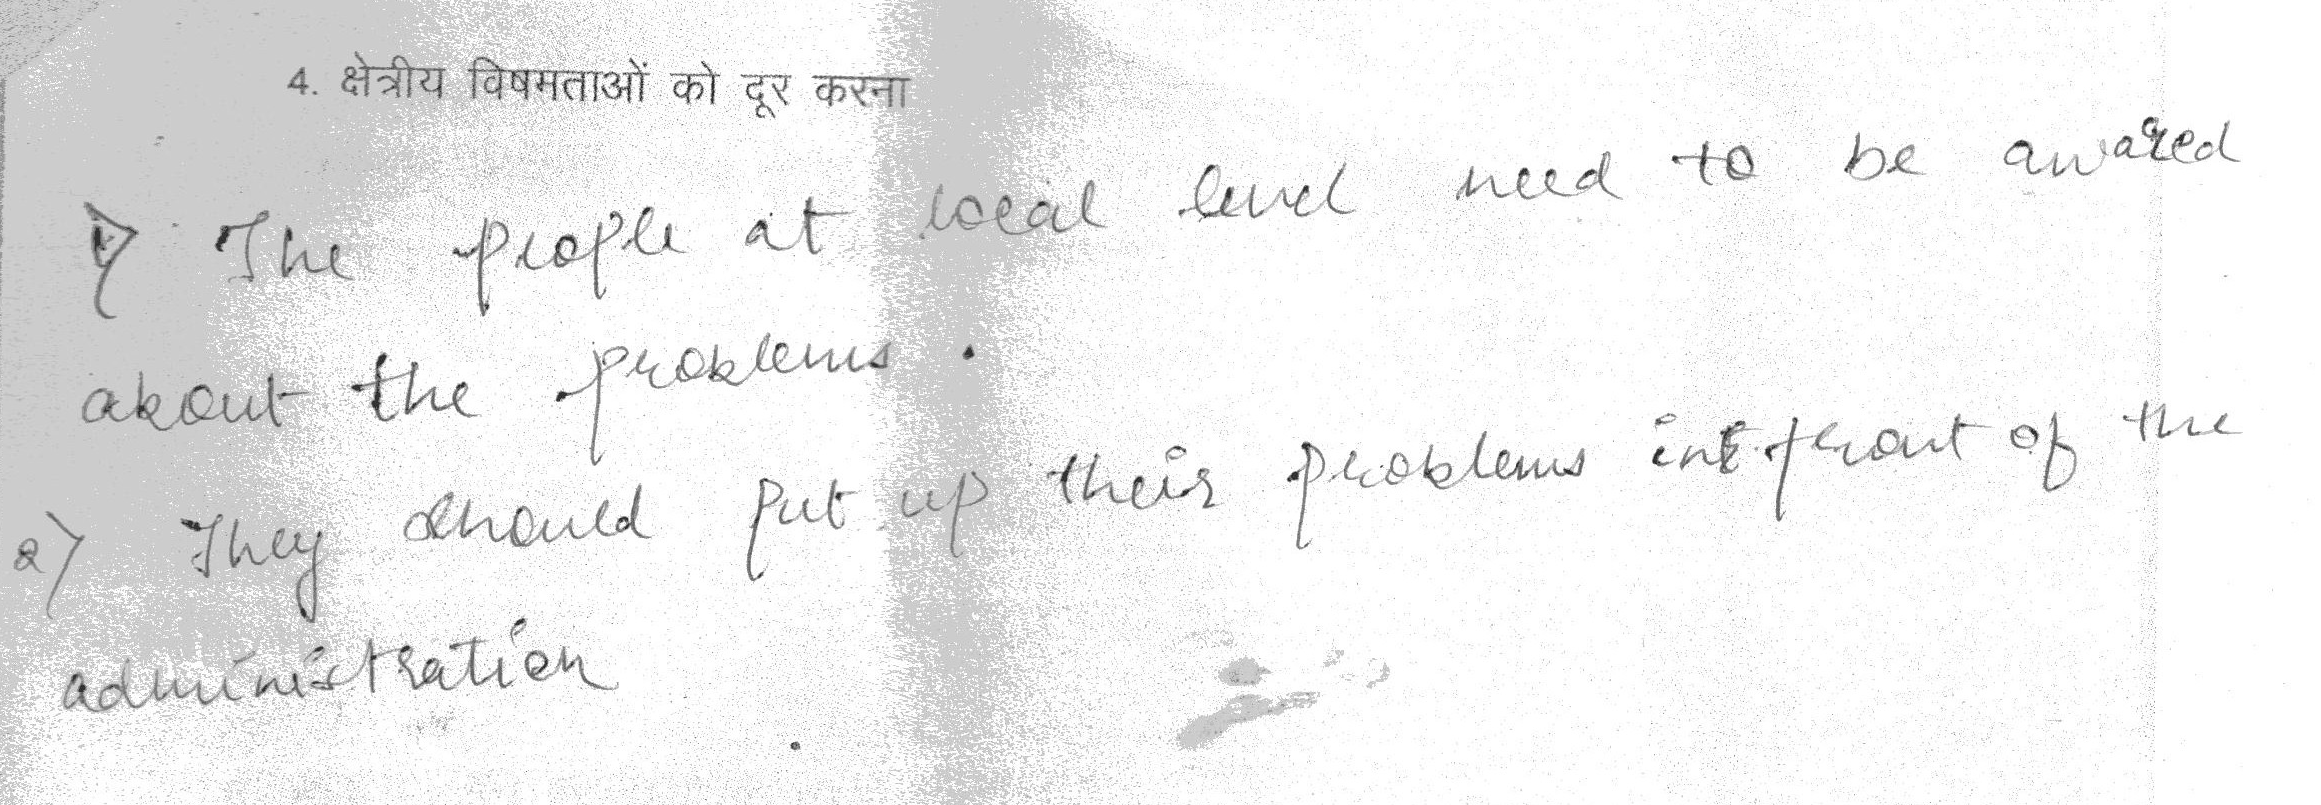 4. क्षेत्रीय विषमताओं को दूर करना
1) The people at local level need to be awared
about the problems.
2) They should put up their problems in front of the
administration